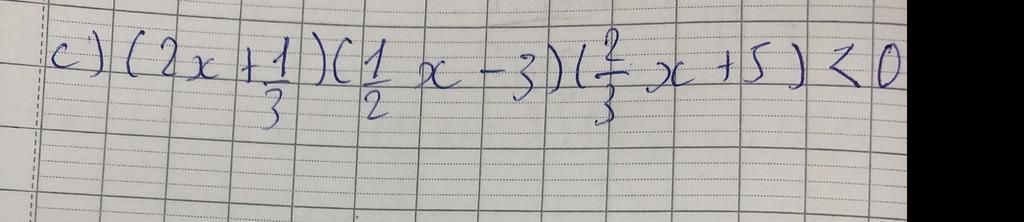 c) (2x + 1/3)(1/2 x - 3)(2/3 x + 5) < 0